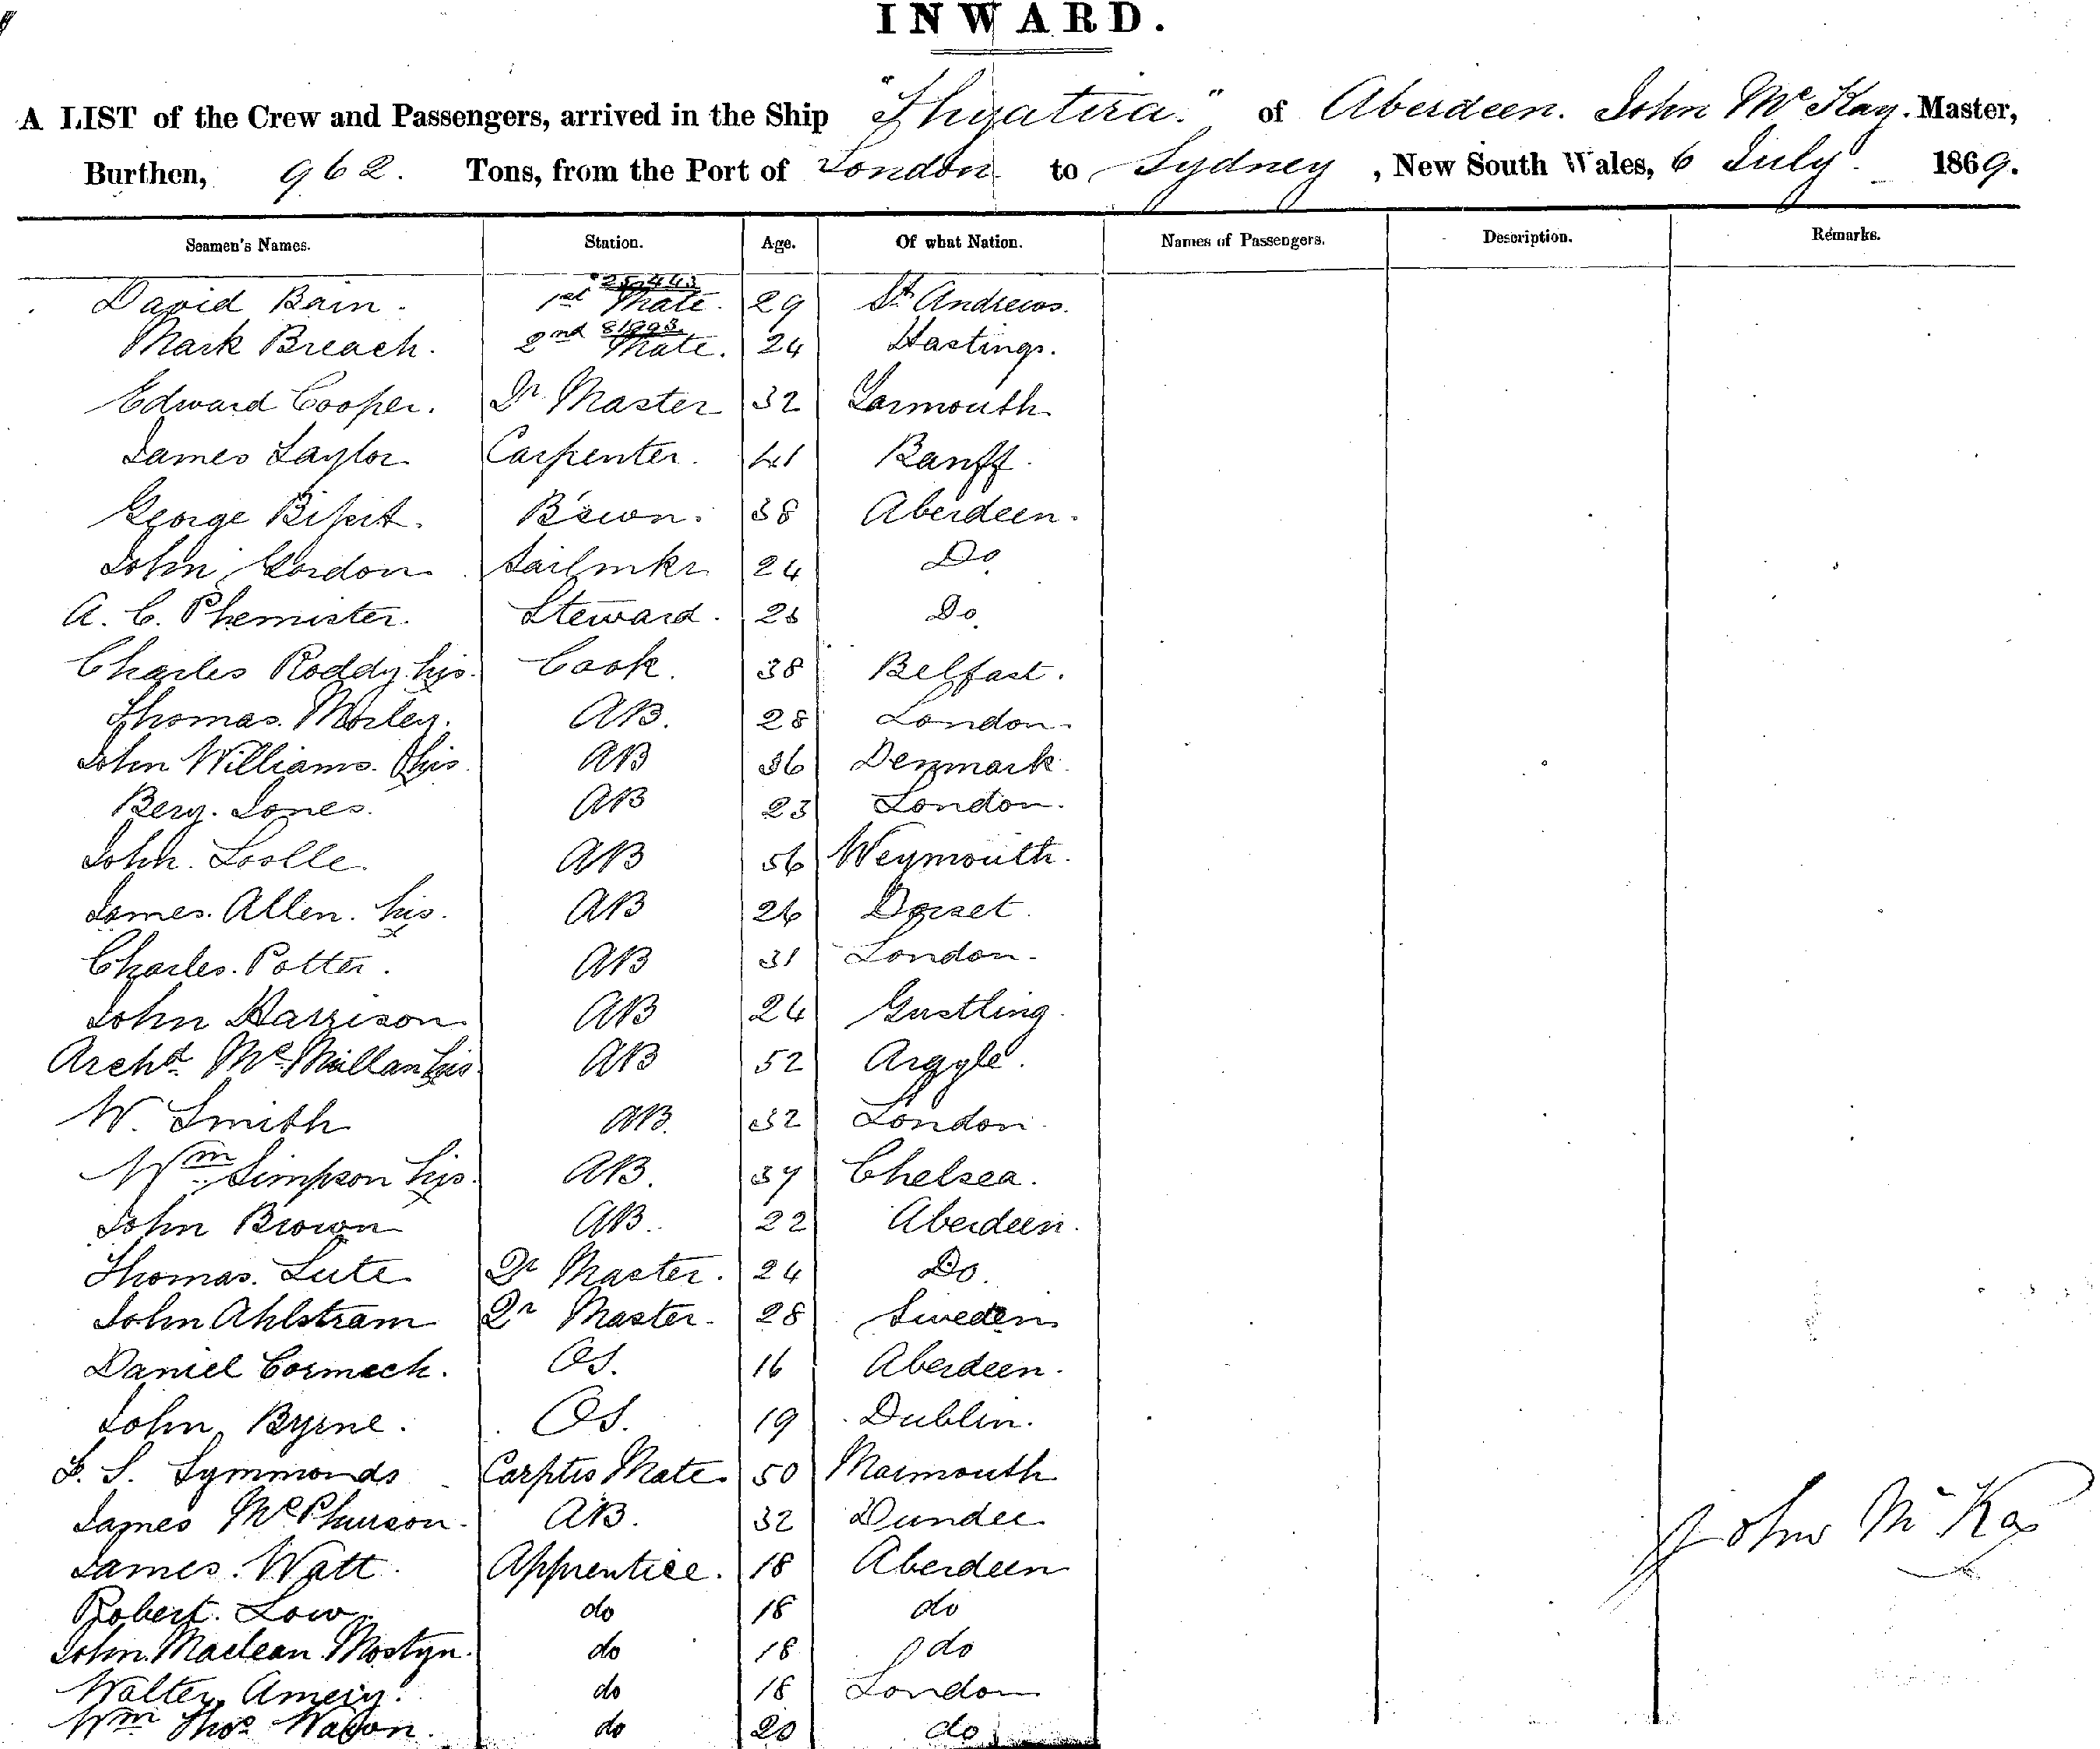 INWARD.
A LIST of the Crew and Passengers, arrived in the Ship "Thyatira." of Aberdeen. John Mc Kay. Master,
Burthen, 962. Tons, from the Port of London to Sydney, New South Wales, 6 July 1869.
Seamen's Names. Station. Age. Of what Nation. Names of Passengers. Description. Remarks.
25,443
David Bain. 1st Mate. 29 St Andrews.
81993
Mark Breach. 2nd Mate. 24 Hastings.
Edward Cooper. Qr Master 32 Yarmouth
James Taylor Carpenter. 41 Banff.
George Bisset. Bswn. 38 Aberdeen.
John Gordon Sailmkr 24 Do
A. C. Phemister. Steward. Do
Charles Roddy his x Cook. 38 Belfast.
Thomas. Morley. AB. 28 London.
John Williams. his AB 36 Denmark.
Benj. Jones. AB 23 London.
John. AB 56 Weymouth.
James. Allen. his x AB 26 Dorset.
Charles. Potter. AB 31 London.
John Harrison AB 24 Gustling.
Archd Mc Millan his x AB 52 Argyle.
W. Smith AB. 32 London.
Wm Simpson his x AB. 37 Chelsea.
John Brown AB. 22 Aberdeen.
Thomas. Lute Qr Master. 24 Do.
John Ahlstram Qr Master. 28 Sweden
Daniel Cormack. OS. 16 Aberdeen.
John Byrne. OS. 19 Dublin.
S. Symmonds Carptrs Mate. 50 Monmouth
James McPhurson. AB. 32 Dundee
James. Watt. Apprentice. 18 Aberdeen
Robert. Low. do 18 do
John. Maclean. Mostyn. do 18 do
Walter. Amery. do 18 London
Wm Thos do 20 do
John Mc Kay